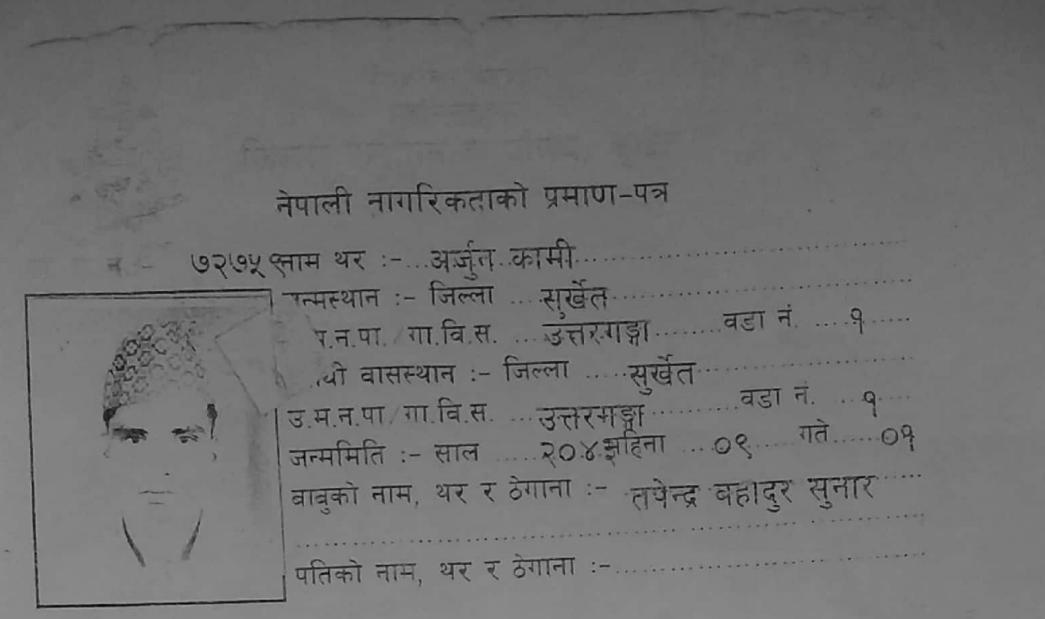 नेपाली नागरिकताको प्रमाण-पत्र
७२७५ नाम थर :- अर्जुन कामी
न्मस्थान :- जिल्ला सुर्खेत
न.पा. गा.वि.स. उत्तरगङ्गा वडा नं. १
यी वासस्थान :- जिल्ला सुर्खेत
उ.म.न.पा. गा.वि.स. उत्तरगङ्गा वडा नं. १
जन्ममिति :- साल २०४ महिना ०९ गते ०१
बाबुको नाम, थर र ठेगाना :- तपेन्द्र बहादुर सुनार
पतिको नाम, थर र ठेगाना :-